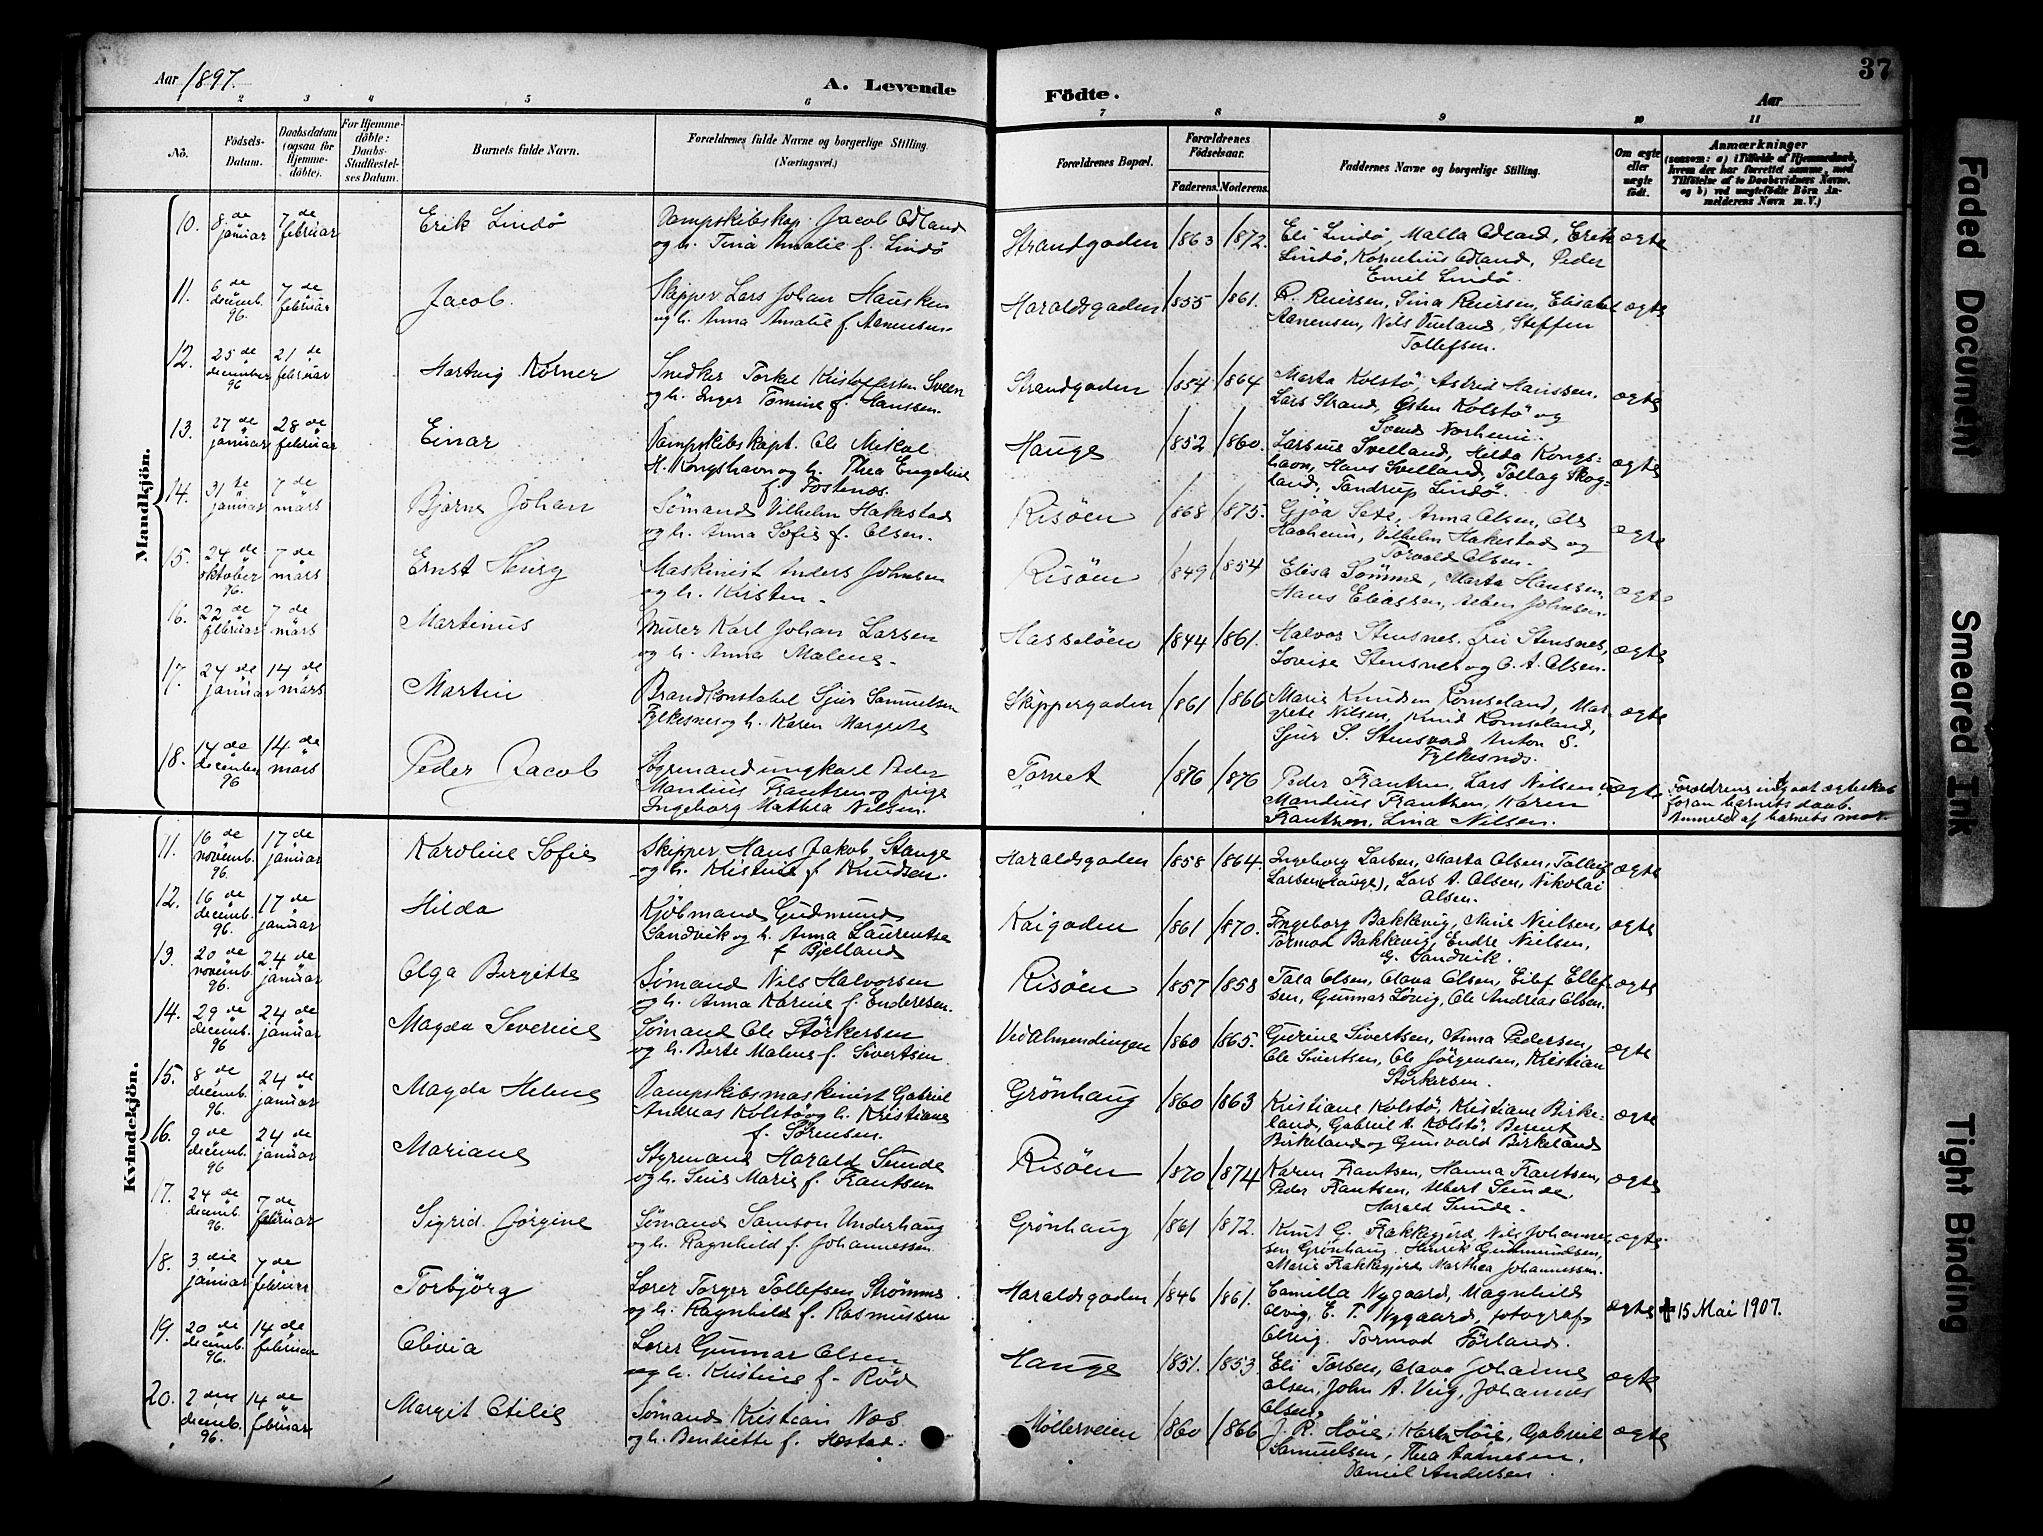 Aar 1897.
A. Levende
Födte.
37
Aar
1 2 3 4 5 6 7 8 9 10 11
No.
Födsels-Datum.
Daabsdatum (ogsaa for Hjemme-döbte).
For Hjemme-döbte: Daabs-Stadfæstel-ses Datum.
Barnets fulde Navn.
Forældrenes fulde Navne og borgerlige Stilling. (Næringsvei.)
Forældrenes Bopæl.
Forældrenes Födselsaar.
Faderens. Moderens.
Faddernes Navne og borgerlige Stilling.
Om ægte eller uægte födt.
Anmærkninger
(saasom: a) i Tilfælde af Hjemmedaab,
hvem der har forrettet samme, med
Tilföielse af to Daabsvidners Navne,
og b) ved uægtefödte Börn An-
melderens Navn m. V.)
Mandkjön.
10. 8de januar 7de februar Erik Lindö Dampskibskap. Jacob Ödland
og h. Tina Amalie f. Lindö
Strandgaden 1863 1872. Eli Lindö, Malla Ödland, Erik ægte
Lindö, Kornelius Ödland, Peder
Emil Lindö.
11. 6de decemb. 96. 7de februar Jacob. Skipper Lars Johan Hausken
og h. Anna Amalie f. Aanensen
Haraldsgaden 1855 1861. R. Reiersen, Sina Reiersen, Elisabet ægte
Aanensen, Nils Vueland, Steffen
Tollefsen.
12. 25de december 96 21de februar Hartvig Körner Snedker Torkel Kristoffersen Sveen
og h. Inger Tomine f. Hanssen.
Strandgaden 1854 1864 Marta Kolstö, Astrid Hanssen, ægte
Lars Strand, Östen Kolstö og
Svend Norheim.
13. 27de januar 28de februar Einar Dampskibskapt. Ole Mikal
H. Kongshavn og h. Thea Engeline
f. Fostenæs.
Hauge 1852 1860. Larsine Svelland, Hilda Kongs- ægte
havn, Hans Svelland, Tollag Skog-
land, Tandrup Lindö.
14. 31te januar 7de mars Bjarne Johan Sömand Vilhelm Hakestad
og h. Anna Sofie f. Olsen.
Risöen 1868 1875. Gjöa Sete, Anna Olsen, Ole ægte
Haaheim, Vilhelm Hakestad og
Torvald Olsen.
15. 24de oktober 96. 7de mars Ernst Henry Maskinist Anders Johnsen
og h. Kirsten.
Risöen 1849 1854 Elisa Sömme, Marta Hanssen, ægte
Hans Eliassen, Johnsen.
16. 22de februar 7de mars Martinus Murer Karl Johan Larsen
og h. Anna Malene.
Hasselöen 1844 1861. Halvor Stensnes, Stensnes, ægte
Lovise Stensnes og O. A. Olsen.
17. 24de januar 14de mars Martin Brandkonstabel Sjur Samuelsen
Fylkesnes og h. Karen Margrete
Skippergaden 1861 1866 Marie Knudsen Romseland, Mar- ægte
grete Nilsen, Knud Romseland,
Sjur S. Stensvad Anton S.
Fylkesnes.
18. 14de december 96 14de mars Peder Jacob Styrmand ungkarl Peder
Mandius Frantsen og pige
Ingeborg Mathea Nilsen.
Torvet 1876 1876 Peder Frantsen, Lars Nilsen, uægte
Mandius Frantsen, Karen
Frantsen, Lina Nilsen.
Forældrene indgaat ægteskab
foran barnets daab.
Anmeldt af barnets mor.
Kvindekjön.
11. 16de novemb. 96. 17de januar Karoline Sofie Skipper Hans Jakob Stange
og h. Kristine f. Knudsen.
Haraldsgaden 1858 1864. Ingeborg Larsen, Marta Olsen, Tollef ægte
Larsen (Hauge), Lars A. Olsen, Nikolai
Olsen.
12. 16de decemb. 96. 17de januar Hilda Kjöbmand Gudmund
Sandvik og h. Anna Laurentse
f. Bjelland
Kaigaden 1861 1870. Ingeborg Bakkevig, Nielsen, ægte
Tormod Bakkevig, Endre Nielsen,
G. Sandvik.
13. 20de novemb. 96. 24de januar Olga Birgitte Sömand Nils Halvorsen
og h. Anna Karine f. Endresen.
Risöen 1857 1858 Tala Olsen, Olava Olsen, Eilef Ellef- ægte
sen, Gunnar Lövig, Ole Andreas Olsen.
14. 29de decemb. 96 24de januar Magda Severine Sömand Ole Störkersen
og h. Berte Malene f. Sivertsen
Ved Almendingen 1860 1865. Gurine Sivertsen, Anna Pedersen, ægte
Ole Sivertsen, Ole Jörgensen, Kristian
Störkersen.
15. 8de decemb. 96. 24de januar Magda Helene Dampskibsmaskinist Gabriel
Andreas Kolstö og h. Kristiane
f. Sörensen.
Grönhaug 1860 1863 Kristiane Kolstö, Kristiane Birke- ægte
land, Gabriel A. Kolstö, Berent
Birkeland og Gunvald Birkeland
16. 9de decemb. 96 24de januar Mariane Styrmand Harald Sunde
og h. Sine Marie f. Frantsen
Risöen 1870 1874 Karen Frantsen, Hanna Frantsen, ægte
Peder Frantsen, Albert Sunde,
Harald Sunde.
17. 24de decemb. 96. 7de februar Sigrid Jörgine Sömand Samson Underhaug
og h. Ragnhild f. Johannessen
Grönhaug 1861 1872. Knut G. Frakkagjerd, Nils Johannes- ægte
sen Grönhaug, Henrik Gudmundsen,
Marie Frakkagjerd, Marthea Johannessen.
18. 3die januar 7de februar Torbjörg Lærer Torger Tollefsen Strömme
og h. Ragnhild f. Rasmussen
Haraldsgaden 1846 1861. Camilla Nygaard, Magnhild ægte
Alvig, E. T. Nygaard, fotograf
Alvig. Tormod Förland.
✝ 15 Mai 1907.
19. 20de decemb. 96. 14de februar Olivia Lærer Gunnar Olsen
og h. Kristine f. Röd
Hauge 1851. 1853. Eli Torbers, Olava Johanne ægte
Olsen, John A. Veig, Johannes
Olsen,
20. 2den decemb. 96. 14de februar Margit Otilie Sömand Kristian Næs
og h. Bendiette f. Hæstad.
Möllerveien 1860 1866 J. R. Höie, Karen Höie, Gabriel ægte
Samuelsen, Thea Aanesen,
Daniel Andersen.
Faded Document
Smeared Ink
Tight Binding